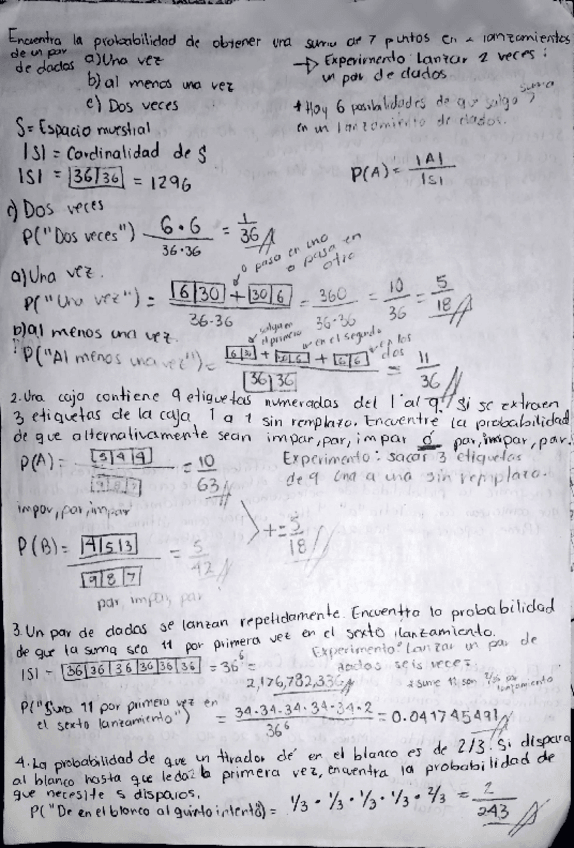 Encuentra la probabilidad de obtener una suma de 7 puntos en 2 lanzamientos
de un par
de dados a) Una vez
→ Experimento: Lanzar 2 veces
un par de dados
b) al menos una vez
c) Dos veces
+ Hay 6 posibilidades de que salga suma 7
en un lanzamiento de dados.
S = Espacio muestral
|S| = Cardinalidad de S
|S| = |36|36| = 1296
P(A) = |A| / |S|
c) Dos veces
P("Dos veces") 6·6 / 36·36 = 1/36
a) Una vez.
o pasa en uno
o pasa en
otro
P("Una vez") = |6|30| + |30|6| / 36·36 = 360 / 36·36 = 10/36 = 5/18
b) al menos una vez.
salga en
el primero
en el segundo
en los
dos
P("Al menos una vez") = |6|30| + |30|6| + |6|6| / |36|36| = 11/36
2. Una caja contiene 9 etiquetas numeradas del 1 al 9. Si se extraen
3 etiquetas de la caja 1 a 1 sin remplazo. Encuentre la probabilidad
de que alternativamente sean impar, par, impar o par, impar, par.
P(A) = |5|4|4| / |9|8|7| = 10/63
Experimento: sacar 3 etiquetas
de 9 una a una sin remplazo.
impar, par, impar
+ = 5/18
P(B) = |4|5|3| / |9|8|7| = 5/42
par, impar, par
3. Un par de dados se lanzan repetidamente. Encuentra la probabilidad
de que la suma sea 11 por primera vez en el sexto lanzamiento.
|S| = |36|36|36|36|36|36| = 36⁶ =
2,176,782,336
Experimento: Lanzar un par de
dados seis veces
P("Suma 11 por primera vez en
el sexto lanzamiento") = 34·34·34·34·34·2 / 36⁶ = 0.041745491
4. La probabilidad de que un tirador dé en el blanco es de 2/3. Si dispara
al blanco hasta que le da la primera vez, encuentra la probabilidad de
que necesite 5 disparos.
P("De en el blanco al quinto intento") = 1/3 · 1/3 · 1/3 · 1/3 · 2/3 = 2/243